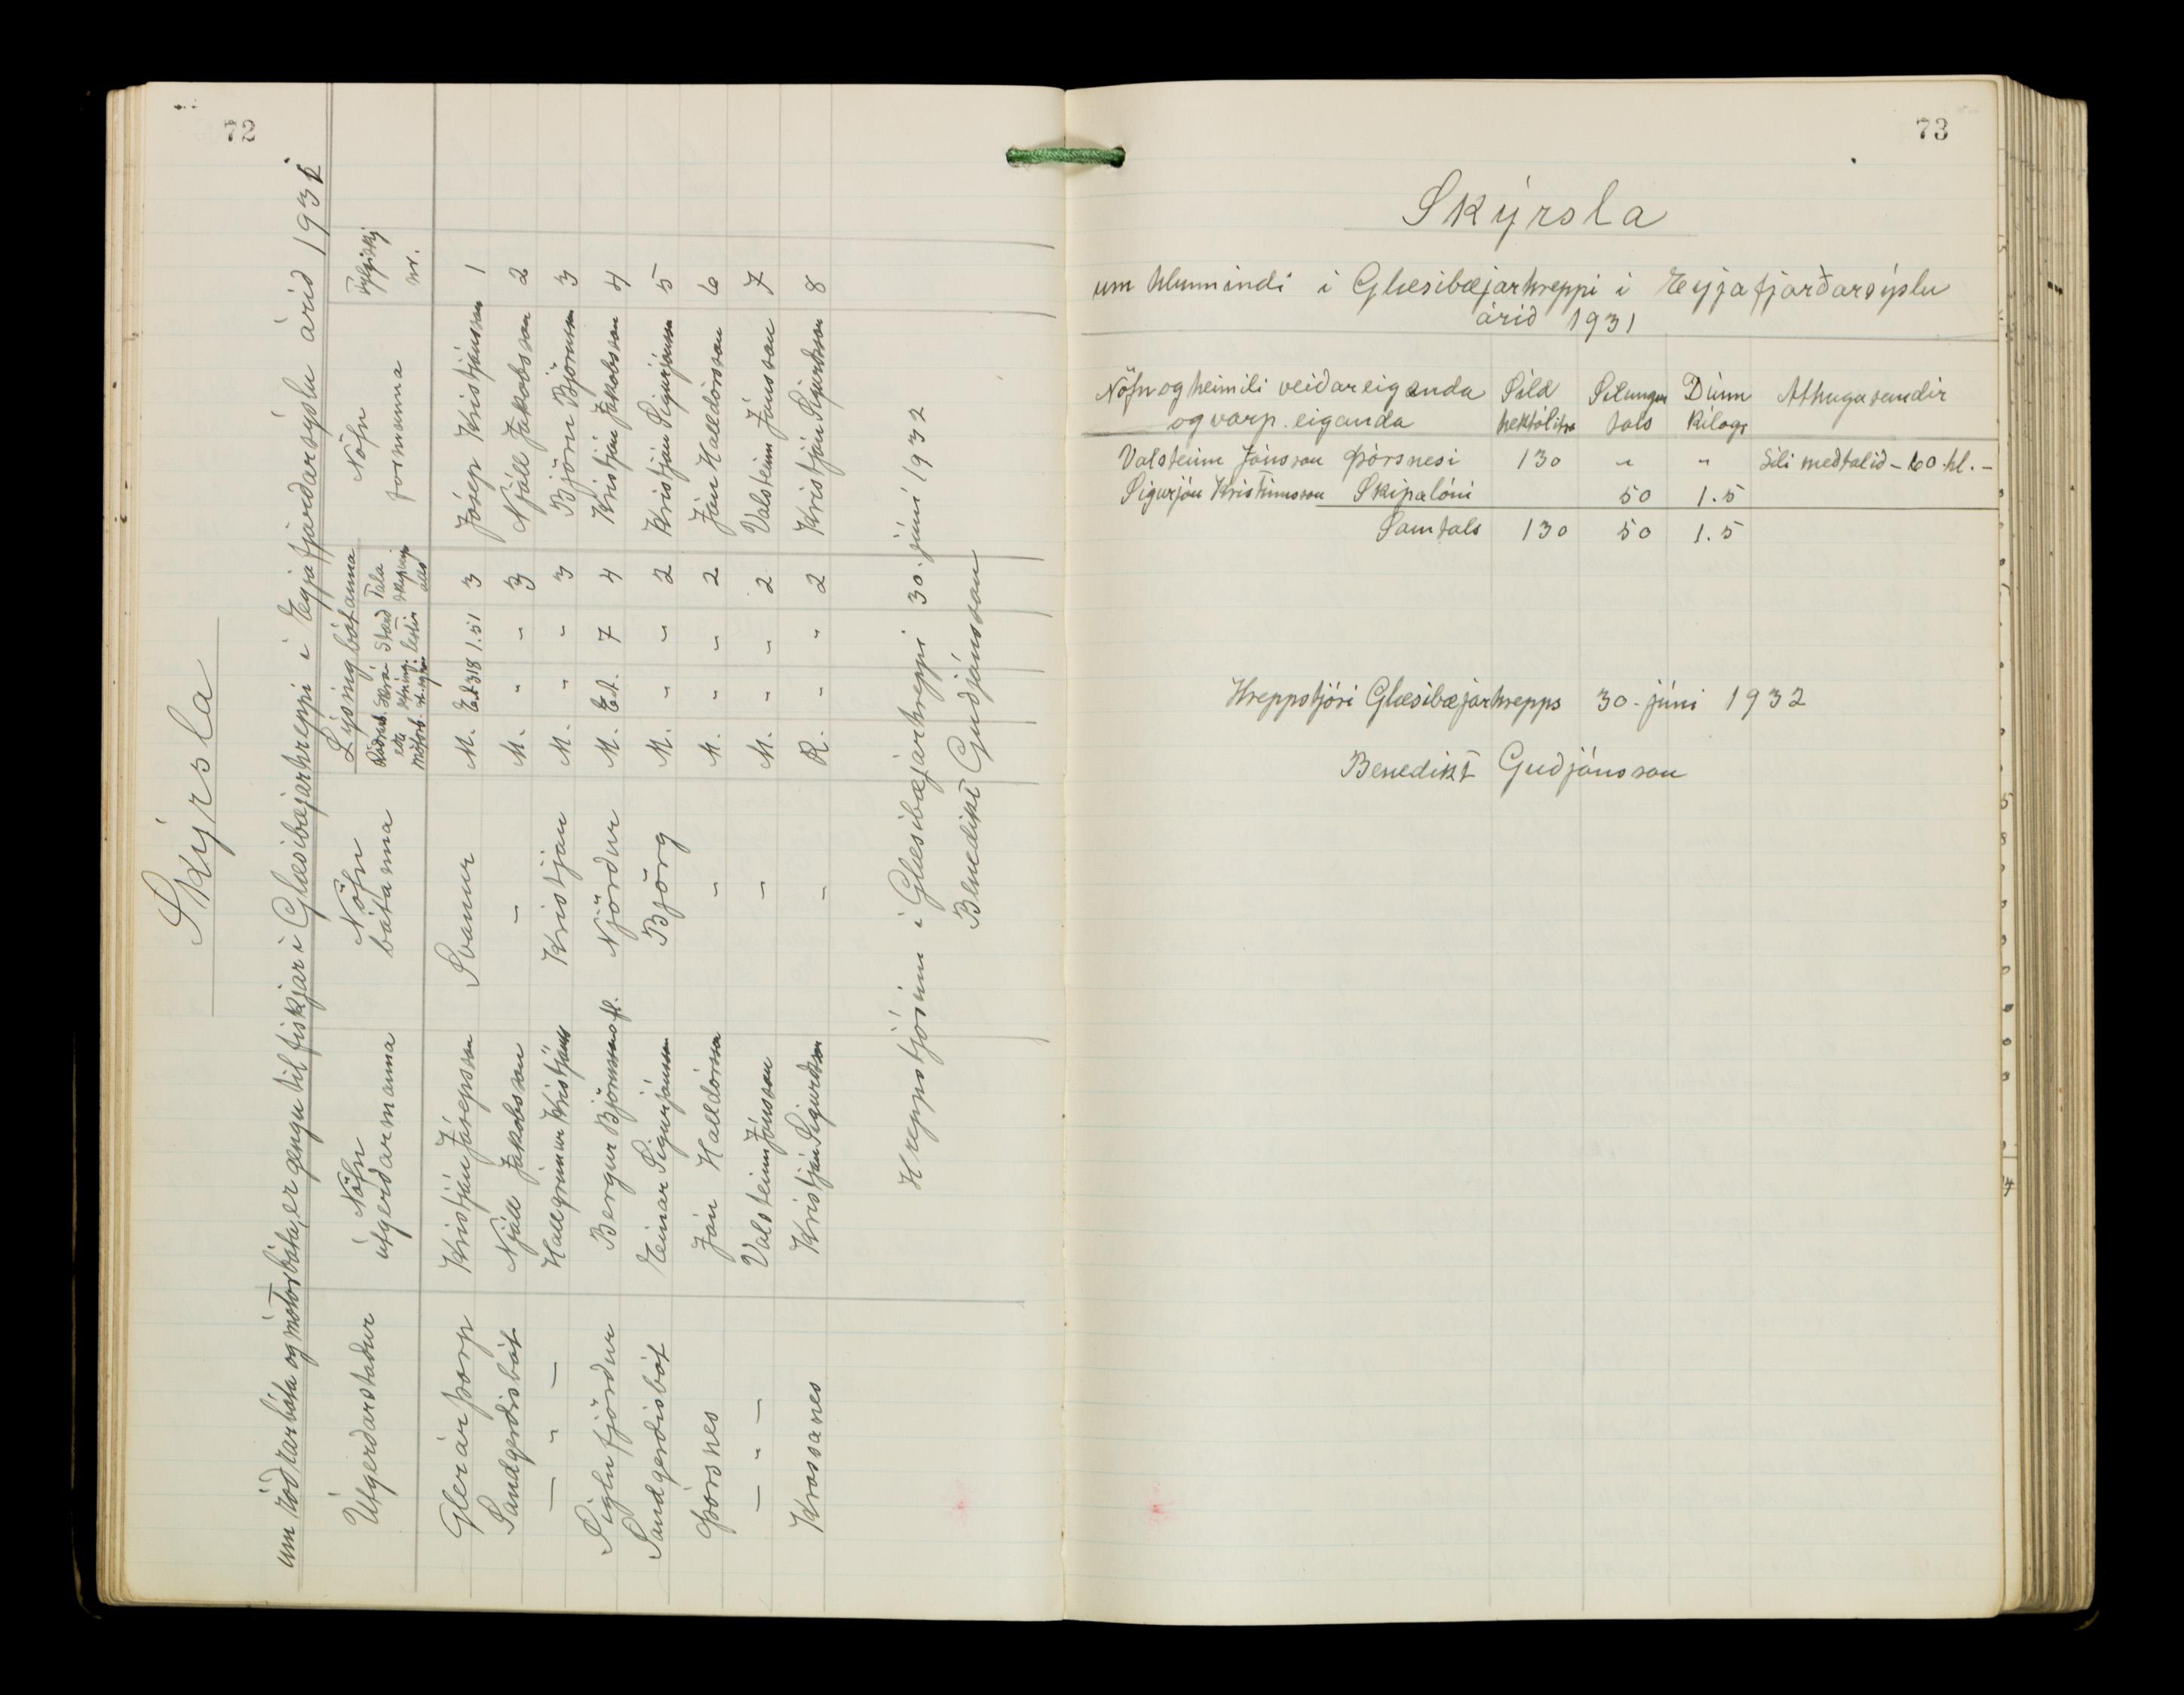 72
Skýrsla
um róðrarbáta og mótorbáta, er gengu til fiskjar í Glæsibæjarhreppi í Eyjafjarðarsýslu árið 1931
Útgerðarstaður Nöfn útgerðarmanna Nöfn bátanna Lýsing bátanna Nöfn formanna Fylgiskj. nr.
Róðrarb. eða mótorb. Skrásetning. Stærð lestir Tala skipverja alls
Glerárþorp Kristján Jósepsson Svanur M. Ea 318 1.51 3 Jósep Kristjánsson 1
Sandgerðisbót Njáll Jakobsson - M. " " 3 Njáll Jakobsson 2
— " — Hallgrímur Kristjáns Kristjan M. " " 3 Björn Björnsson 3
Siglufjörður Bergur Björnsson ofl. Njörður M. Ea. 7 4 Kristján Jakobsson 4
Sandgerðisbót Einar Sigurjónsson Björg M. " " 2 Kristján Sigurjónsson 5
Þórsnes Jón Halldórsson - M. " " 2 Jón Halldórsson 6
— " — Valsteinn Jónsson - M. " " 2 Valsteinn Jónsson 7
Krossanes Kristján Sigurðsson - R. " " 2 Kristján Sigurðsson 8
Hreppstjórinn í Glæsibæjarhreppi 30. júní 1932
Benedikt Guðjónsson
73
Skýrsla
um hlunnindi í Glæsibæjarhreppi í Eyjafjarðarsýslu
árið 1931
Nöfn og heimili veiðareiganda Síld Silungur Dúnn Athugasemdir
og varp. eiganda hektólitra tals kílogr
Valsteinn Jónsson Þórsnesi 130 " " Síli meðtalið - 60 hl. -
Sigurjón Kristinsson Skipalóni 50 1.5
Samtals 130 50 1.5
Hreppstjóri Glæsibæjarhrepps 30. júní 1932
Benedikt Guðjónsson